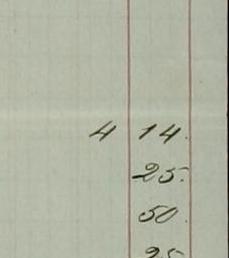 4 14.
25.
50.
25